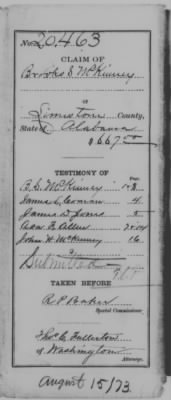 No. 20,463
CLAIM OF
Brooks S. McKinney
OF
Limestone County,
State of Alabama
$667.50
TESTIMONY OF
Page.
B. S. McKinney 1&3
James C. 4
James D. Jones 5
Asa F. Allen 7&14
John H. McKinney 16
Submitted
TAKEN BEFORE
R P Baker
Special Commissioner.
Thos. C. Fullerton
of Washington
Attorney.
August 15/73